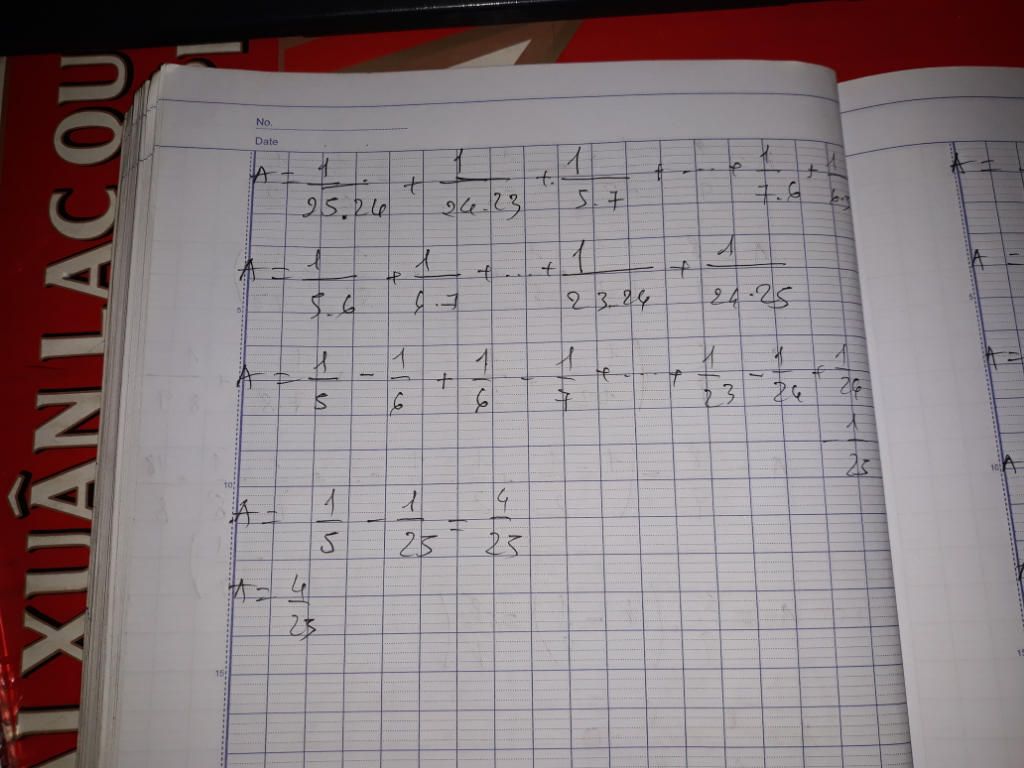 XUÂN LẠC QU
No.
Date
A = 1/25.24 + 1/24.23 + 1/5.7 + ... + 1/7.6 + 1/6.5
A = 1/5.6 + 1/6.7 + ... + 1/23.24 + 1/24.25
A = 1/5 - 1/6 + 1/6 - 1/7 + ... + 1/23 - 1/24 + 1/24
- 1/25
A = 1/5 - 1/25 = 4/25
A = 4/25
5
10
15
A =
A =
A =
A
10
15